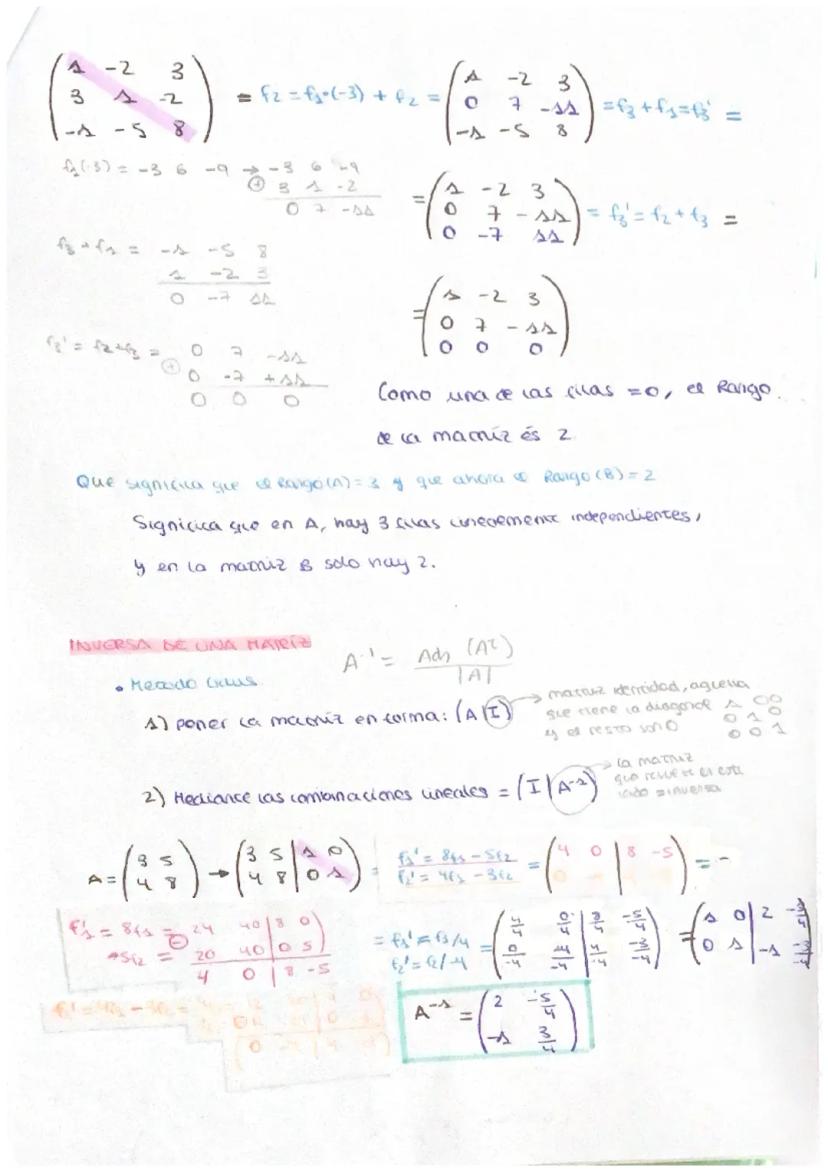 (1 -2 3 / 3 1 -2 / -1 -5 8) = f2 = f1·(-3) + f2 = (1 -2 3 / 0 7 -11 / -1 -5 8) = f3 + f1 = f3' =
f1(-3) = -3 6 -9 → -3 6 -9
+ 3 1 -2
0 7 -11
= (1 -2 3 / 0 7 -11 / 0 -7 11) = f3' = f2 + f3 =
f3 + f1 = -1 -5 8
1 -2 3
0 -7 11
= (1 -2 3 / 0 7 -11 / 0 0 0)
f3' = f2+f3 = 0 7 -11
+ 0 -7 +11
0 0 0
Como una de las filas =0, el Rango
de la matriz és 2
Que significa que el Rango(A)=3 y que ahora el Rango(B)=2
Significa que en A, hay 3 filas linealmente independientes,
y en la matriz B solo hay 2.
INVERSA DE UNA MATRIZ
A⁻¹ = Adj (Aᵗ) / |A|
• Metodo
1) poner la matriz en forma: (A|I) → matriz identidad, aquella
que tiene la diagonal 1 0 0
y el resto son 0 0 1 0
0 0 1
2) Mediante las combinaciones lineales = (I|A⁻¹) → la matriz
que resulte en este
lado = inversa
A = (3 5 / 4 8) → (3 5 | 1 0 / 4 8 | 0 1) = f1' = 8f1 - 5f2
f2' = 4f1 - 3f2 = (4 0 | 8 -5) =
f'1 = 8f1 = 24 40 | 8 0
-5f2 = 20 40 | 0 5
4 0 | 8 -5
= f1' = f1/4
f2' = f2/-4 = (4/4 0/4 | 8/4 -5/4 / 0/-4 -4/-4 | 4/-4 -3/-4) = (1 0 | 2 / 0 1 | -1 -3/-4)
A⁻¹ = (2 -5/4 / -1 3/4)